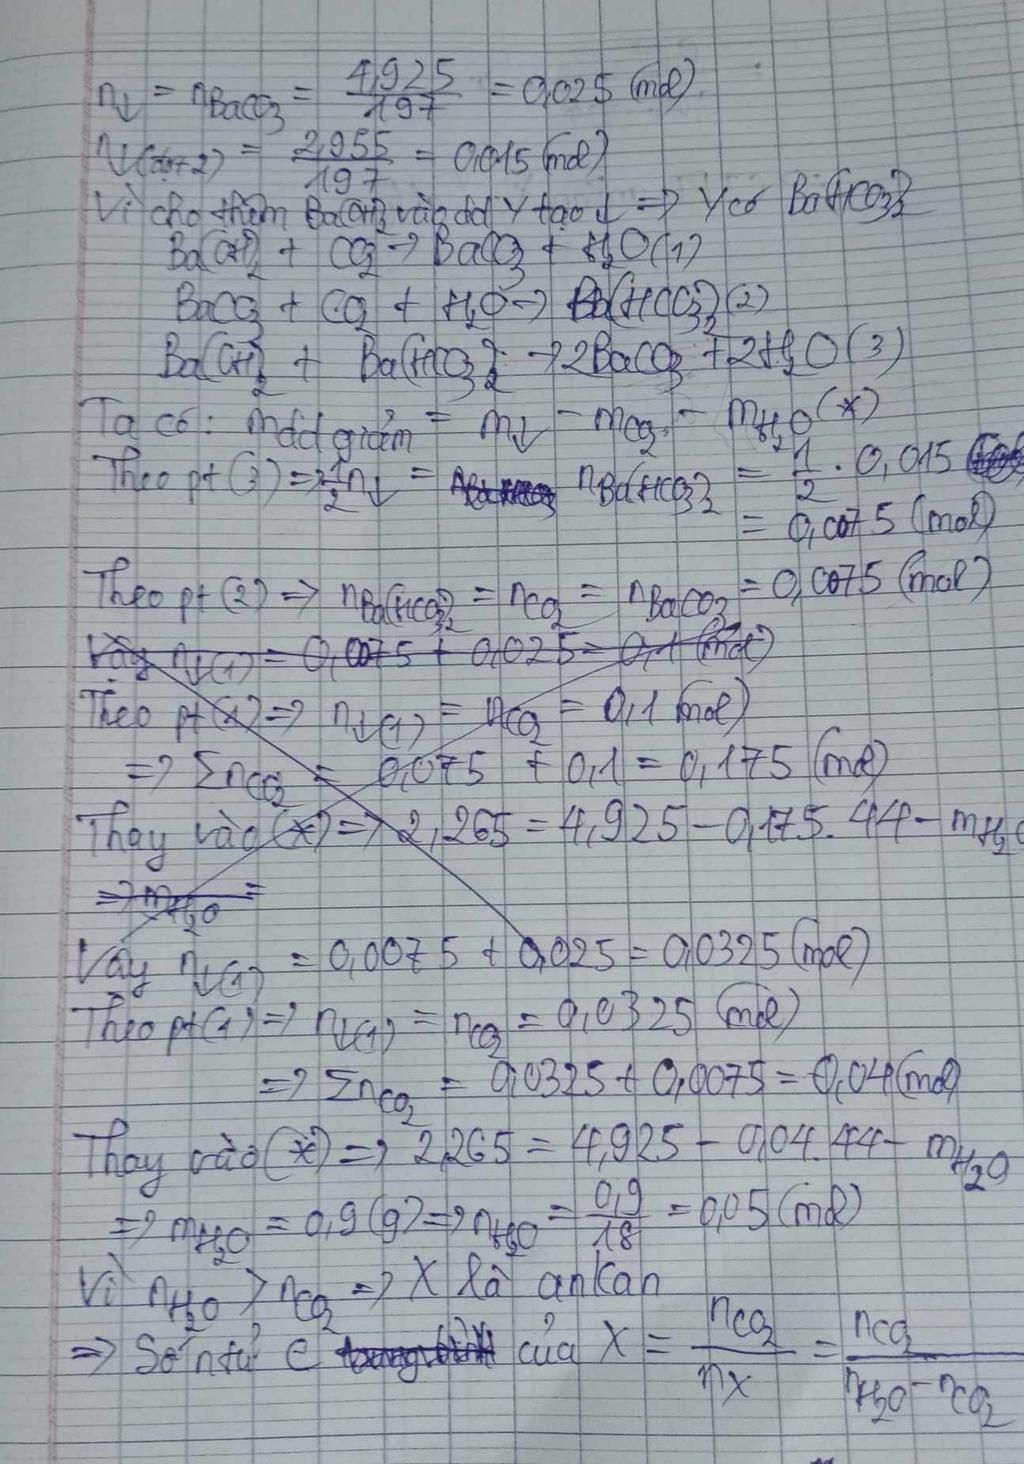 n↓ = nBaCO3 = 4,925/197 = 0,025 (mol).
n↓(đợt 2) = 2,955/197 = 0,015 (mol)
Vì cho thêm Ba(OH)2 vào dd Y tạo ↓ => Y có Ba(HCO3)2
Ba(OH)2 + CO2 -> BaCO3 + H2O (1)
BaCO3 + CO2 + H2O -> Ba(HCO3)2 (2)
Ba(OH)2 + Ba(HCO3)2 -> 2BaCO3 + 2H2O (3)
Ta có: mdd giảm = m↓ - mCO2 - mH2O (*)
Theo pt (3) => 1/2 n↓ = nBa(HCO3)2 = 1/2 . 0,015
= 0,0075 (mol)
Theo pt (2) => nBa(HCO3)2 = nCO2 = nBaCO3 = 0,0075 (mol)
Vậy n↓(1) = 0,0075 + 0,025 = 0,1 (mol)
Theo pt (1) => n↓(1) = nCO2 = 0,1 (mol)
=> ΣnCO2 = 0,075 + 0,1 = 0,175 (mol)
Thay vào (*) => 2,265 = 4,925 - 0,175.44 - mH2O
=> mH2O =
Vậy n↓(1) = 0,0075 + 0,025 = 0,0325 (mol)
Theo pt (1) => n↓(1) = nCO2 = 0,0325 (mol)
=> ΣnCO2 = 0,0325 + 0,0075 = 0,04 (mol)
Thay vào (*) => 2,265 = 4,925 - 0,04.44 - mH2O
=> mH2O = 0,9 (g) => nH2O = 0,9/18 = 0,05 (mol)
Vì nH2O > nCO2 => X là ankan
=> Số ntử C của X = nCO2/nX = nCO2/nH2O - nCO2